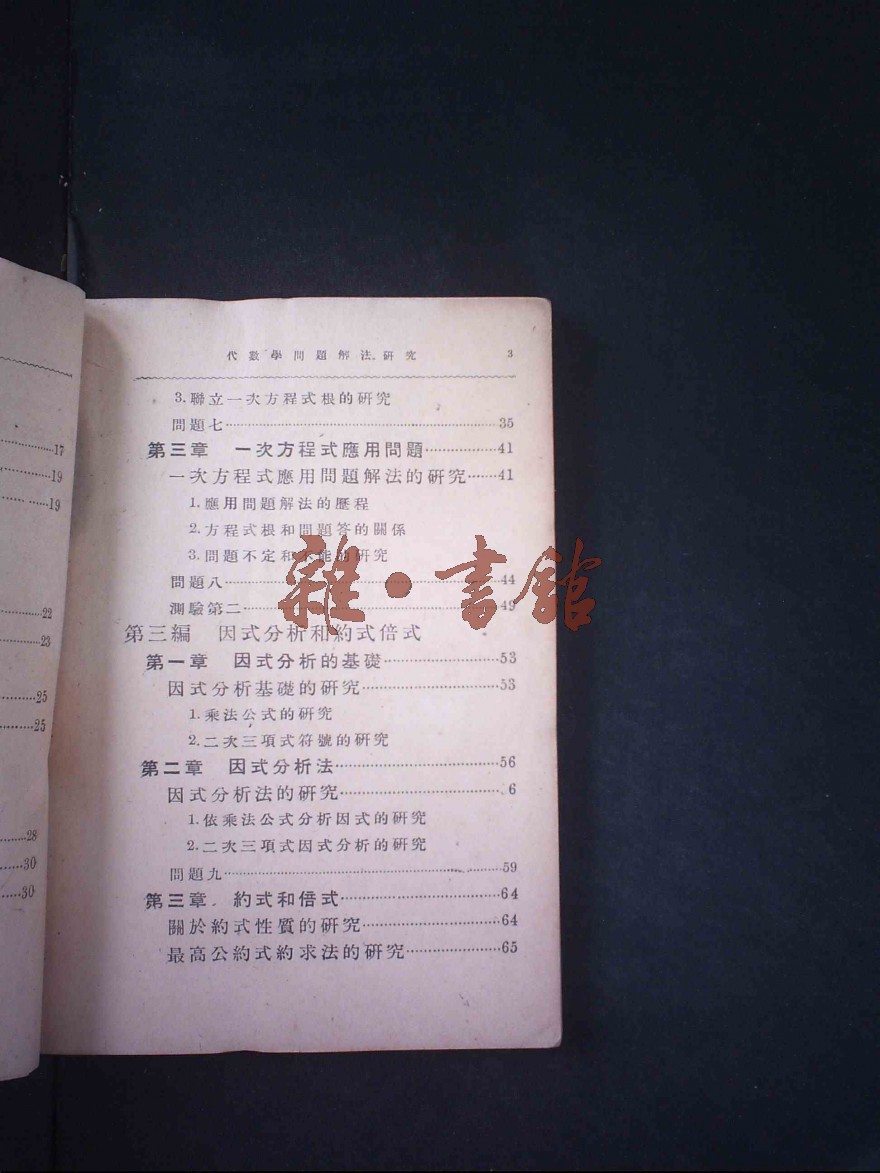 17
19
19
22
23
25
25
28
30
30
代數學問題解法研究 3
3.聯立一次方程式根的研究
問題七……35
第三章 一次方程式應用問題……41
一次方程式應用問題解法的研究……41
1.應用問題解法的歷程
2.方程式根和問題答的關係
3.問題不定和不能的研究
問題八……44
測驗第二……49
雜·書館
第三編 因式分析和約式倍式
第一章 因式分析的基礎……53
因式分析基礎的研究……53
1.乘法公式的研究
2.二次三項式符號的研究
第二章 因式分析法……56
因式分析法的研究……6
1.依乘法公式分析因式的研究
2.二次三項式因式分析的研究
問題九……59
第三章 約式和倍式……64
關於約式性質的研究……64
最高公約式約求法的研究……65